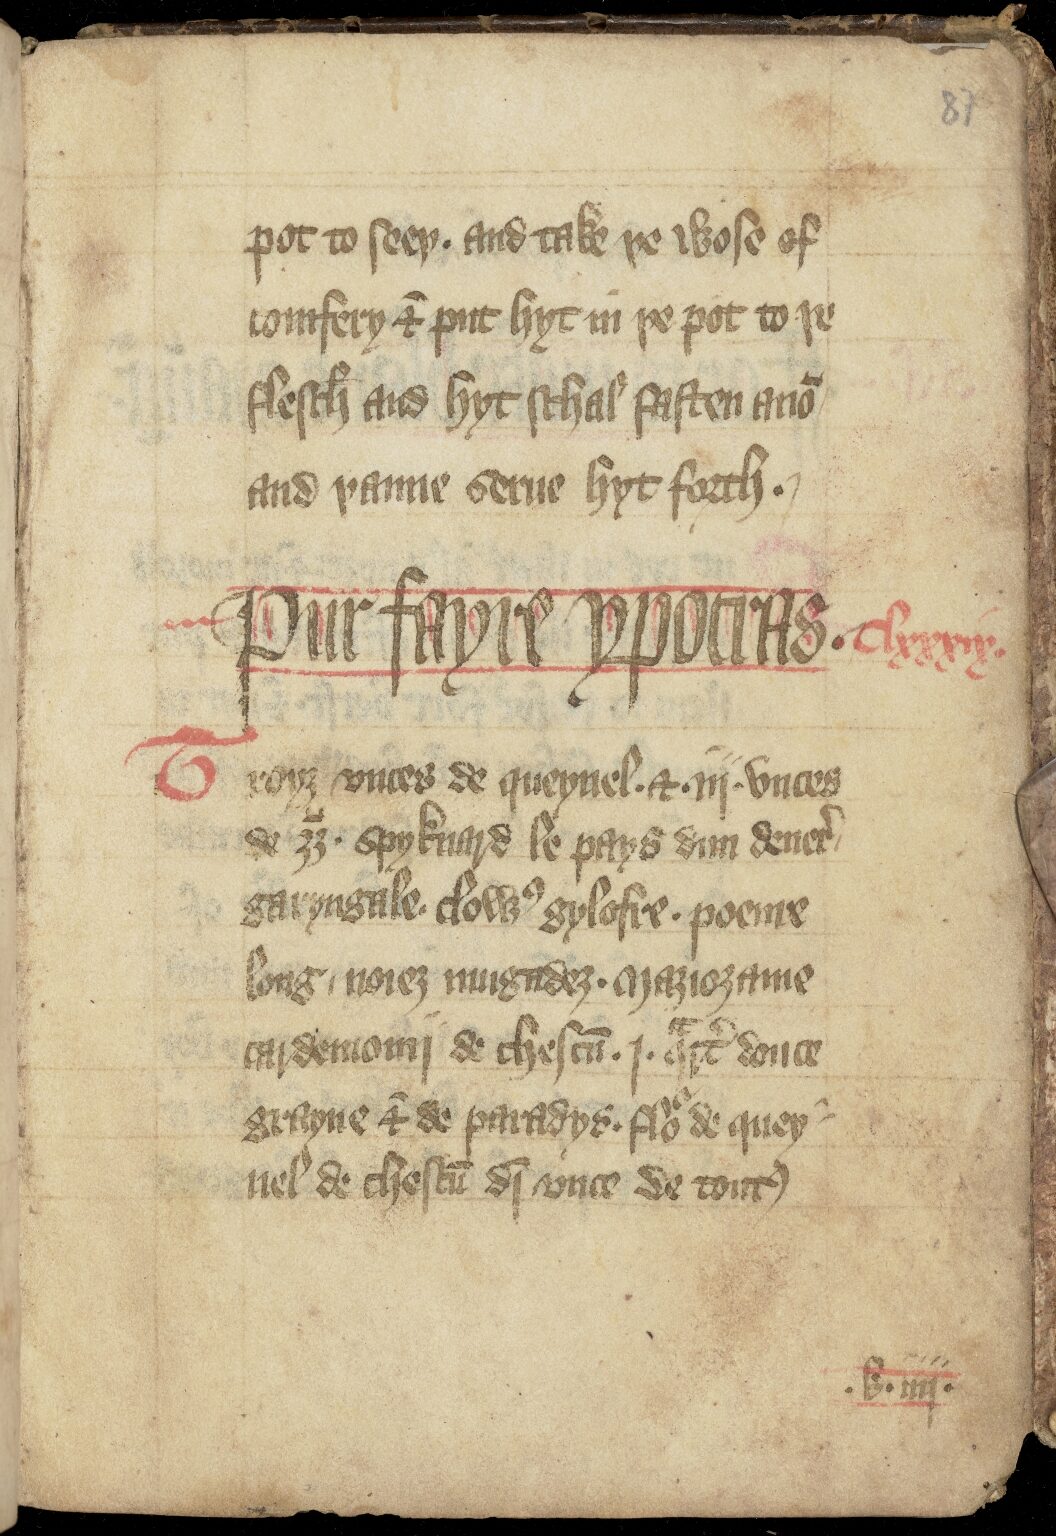 87
pot to seeþ. and take þe wose of
comfery & put hyt in þe pot to þe
flesch and hyt schal fasten anō
and þanne serue hyt forth.
Pur fayre ypocras. Clxxxix.
Troyȝ vnces de queynel. & .iij. vnces
de ȝȝ. spyknard le pays dun dener̉
garyngale. clowȝ gylofre. poeure
long, noieȝ mugadeȝ. maȝioȝame
cardemomij de chescū. j. qᵃrt̉ douce
grayne & de paradys. floᵒ de quey
nel de chescū dj̄ vnce de tout
.k. iiij.